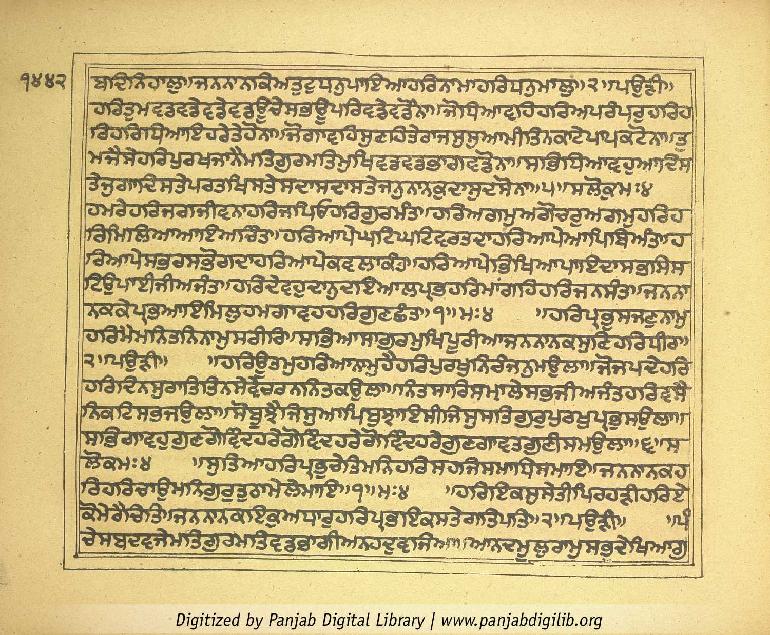 ੧੪੪੨
ਬਾਦਿ ਨਿਹਾਲੁ ॥ ਜਨ ਨਾਨਾਕੈ ਅਤੁਟ ਧਨੁ ਪਾਇਆ ਹਰਿ ਨਾਮਾ ਹਰਿ ਧਨੁ ਮਾਲੁ ॥੨॥ ਪਉੜੀ ॥
ਹਰਿ ਤੁਮ ਵਡ ਵਡੇ ਵਡੇ ਵਡ ਊਚੇ ਸਭ ਊਪਰਿ ਵਡੇ ਵਡੌਨਾ ॥ ਜੋ ਧਿਆਵਹਿ ਹਰਿ ਅਪਰੰਪਰੁ ਹਰਿ ਹ
ਰਿ ਹਰਿ ਧਿਆਇ ਹਰੇ ਤੇ ਹੋਨਾ ॥ ਜੋ ਗਾਵਹਿ ਸੁਣਹਿ ਤੇਰਾ ਜਸੁ ਸੁਆਮੀ ਤਿਨ ਕਾਟੇ ਪਾਪ ਕਟੋਨਾ ॥ ਤੁ
ਮ ਜੈਸੇ ਹਰਿ ਪੁਰਖ ਜਾਨੇ ਮਤਿ ਗੁਰਮਤਿ ਮੁਖਿ ਵਡ ਵਡ ਭਾਗ ਵਡੋਨਾ ॥ ਸਭਿ ਧਿਆਵਹੁ ਆਦਿ ਸ
ਤੇ ਜੁਗਾਦਿ ਸਤੇ ਪਰਤਖਿ ਸਤੇ ਸਦਾ ਸਦਾ ਸਤੇ ਜਨੁ ਨਾਨਕੁ ਦਾਸੁ ਦਸੋਨਾ ॥੫॥ ਸਲੋਕੁ ਮਃ ੪
ਹਮਰੇ ਹਰਿ ਜਗਜੀਵਨਾ ਹਰਿ ਜਪਿਓ ਹਰਿ ਗੁਰ ਮੰਤ ॥ ਹਰਿ ਅਗਮੁ ਅਗੋਚਰੁ ਅਗਮੁ ਹਰਿ ਹ
ਰਿ ਮਿਲਿਆ ਆਇ ਅਚਿੰਤ ॥ ਹਰਿ ਆਪੇ ਘਟਿ ਘਟਿ ਵਰਤਦਾ ਹਰਿ ਆਪੇ ਆਪਿ ਬਿਅੰਤ ॥ ਹ
ਰਿ ਆਪੇ ਸਭ ਰਸ ਭੋਗਦਾ ਹਰਿ ਆਪੇ ਕਵਲਾ ਕੰਤ ॥ ਹਰਿ ਆਪੇ ਭਿਖਿਆ ਪਾਇਦਾ ਸਭ ਸਿਸ
ਟਿ ਉਪਾਈ ਜੀਅ ਜੰਤ ॥ ਹਰਿ ਦੇਵਹੁ ਦਾਨੁ ਦਇਆਲ ਪ੍ਰਭ ਹਰਿ ਮਾਂਗਹਿ ਹਰਿ ਜਨ ਸੰਤ ॥ ਜਨ ਨਾ
ਨਕ ਕੇ ਪ੍ਰਭ ਆਇ ਮਿਲੁ ਹਮ ਗਾਵਹ ਹਰਿ ਗੁਣ ਛੰਤ ॥੧॥ ਮਃ ੪ ॥ ਹਰਿ ਪ੍ਰਭੁ ਸਜਣੁ ਨਾਮੁ
ਹਰਿ ਮੈ ਮਨਿ ਤਨਿ ਨਾਮੁ ਸਰੀਰਿ ॥ ਸਭਿ ਆਸਾ ਗੁਰਮੁਖਿ ਪੂਰੀਆ ਜਨ ਨਾਨਕ ਸੁਣਿ ਹਰਿ ਧੀਰ ॥
੨॥ ਪਉੜੀ ॥ ॥ ਹਰਿ ਊਤਮੁ ਹਰਿਆ ਨਾਮੁ ਹੈ ਹਰਿ ਪੁਰਖੁ ਨਿਰੰਜਨੁ ਮਉਲਾ ॥ ਜੋ ਜਪਦੇ ਹਰਿ
ਹਰਿ ਦਿਨਸੁ ਰਾਤਿ ਤਿਨ ਸੇਵੇ ਚਰਨ ਨਿਤ ਕਉਲਾ ॥ ਨਿਤ ਸਾਰਿ ਸਮਾਲੇ ਸਭ ਜੀਅ ਜੰਤ ਹਰਿ ਵਸੈ
ਨਿਕਟਿ ਸਭ ਜਉਲਾ ॥ ਸੋ ਬੂਝੈ ਜਿਸੁ ਆਪਿ ਬੁਝਾਇਸੀ ਜਿਸੁ ਸਤਿਗੁਰੁ ਪੁਰਖੁ ਪ੍ਰਭੁ ਸਉਲਾ ॥
ਸਭਿ ਗਾਵਹੁ ਗੁਣ ਗੋਵਿੰਦ ਹਰੇ ਗੋਵਿੰਦ ਹਰੇ ਗੋਵਿੰਦ ਹਰੇ ਗੁਣ ਗਾਵਤ ਗੁਣੀ ਸਮਉਲਾ ॥੬॥ ਸ
ਲੋਕ ਮਃ ੪ ॥ ਸੁਤਿਆ ਹਰਿ ਪ੍ਰਭੁ ਚੇਤਿ ਮਨਿ ਹਰਿ ਸਹਜਿ ਸਮਾਧਿ ਸਮਾਇ ॥ ਜਨ ਨਾਨਕ ਹ
ਰਿ ਹਰਿ ਚਾਉ ਮਨਿ ਗੁਰੁ ਤੁਠਾ ਮੇਲੇ ਮਾਇ ॥੧॥ ਮਃ ੪ ॥ ਹਰਿ ਇਕਸੁ ਸੇਤੀ ਪਿਰਹੜੀ ਹਰਿ ਇ
ਕੋ ਮੇਰੈ ਚਿਤਿ ॥ ਜਨ ਨਾਨਕ ਇਕੁ ਅਧਾਰੁ ਹਰਿ ਪ੍ਰਭ ਇਕਸ ਤੇ ਗਤਿ ਪਤਿ ॥੨॥ ਪਉੜੀ ॥ ॥ ਪੰ
ਚੇ ਸਬਦ ਵਜੇ ਮਤਿ ਗੁਰਮਤਿ ਵਡਭਾਗੀ ਅਨਹਦੁ ਵਜਿਆ ॥ ਆਨਦ ਮੂਲੁ ਰਾਮੁ ਸਭੁ ਦੇਖਿਆ ਗੁ
Digitized by Panjab Digital Library | www.panjabdigilib.org